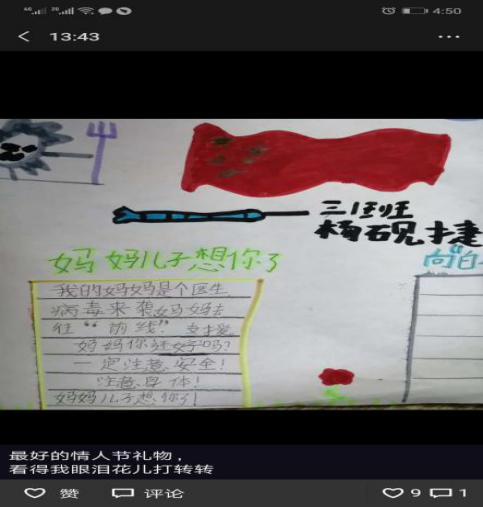 4:50
13:43
三1班
杨砚捷
妈妈儿子想你了
向"白
我的妈妈是个医生
病毒来袭妈妈去
往“前线”
妈妈你还好吗?
一定注意安全!
注意身体!
妈妈儿子想你了!
最好的情人节礼物,
看得我眼泪花儿打转转
赞
评论
9
1